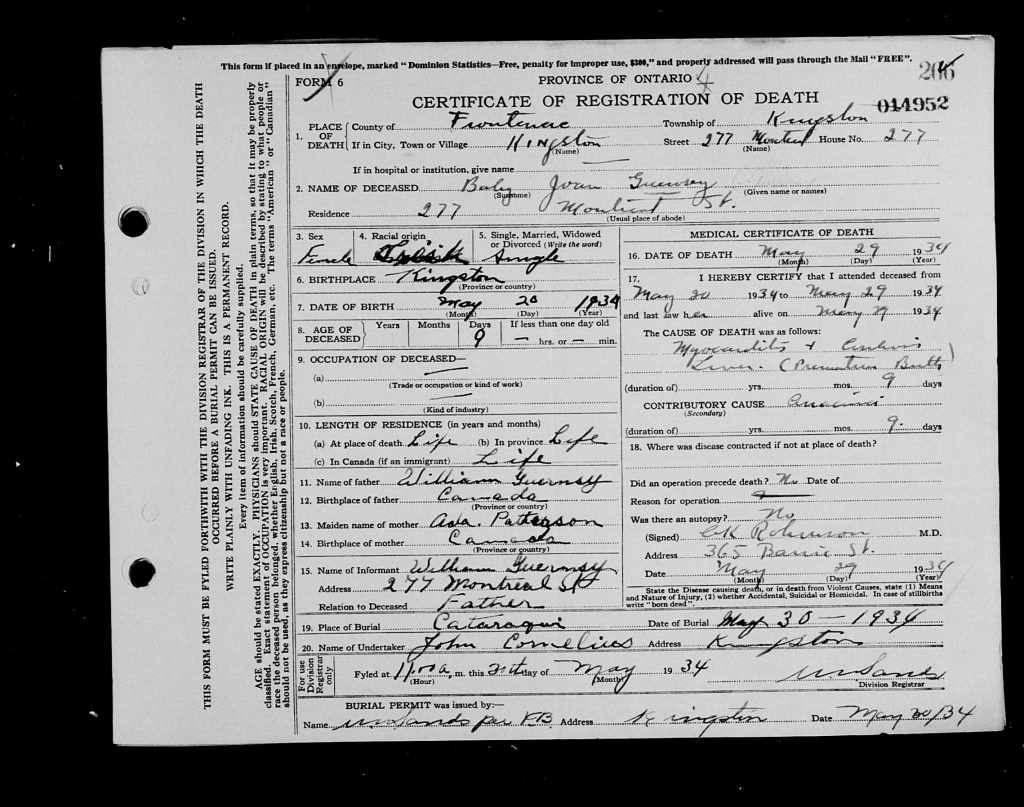 This form if placed in an envelope, marked "Dominion Statistics—Free, penalty for improper use, $300," and properly addressed will pass through the Mail "FREE".
FORM 6
PROVINCE OF ONTARIO
CERTIFICATE OF REGISTRATION OF DEATH
014952
1. PLACE OF DEATH County of Frontenac Township of Kingston
If in City, Town or Village Kingston (Name) Street 277 Montreal (Name) House No. 277
If in hospital or institution, give name —
2. NAME OF DECEASED Baby Joan Guernsey (Surname) (Given name or names)
Residence 277 Montreal St. (Usual place of abode)
3. Sex Female
4. Racial origin
5. Single, Married, Widowed or Divorced (Write the word) Single
6. BIRTHPLACE Kingston (Province or country)
7. DATE OF BIRTH May 20 1934 (Month) (Day) (Year)
8. AGE OF DECEASED Years Months Days 9 If less than one day old — hrs. or — min.
9. OCCUPATION OF DECEASED—
(a) — (Trade or occupation or kind of work)
(b) — (Kind of industry)
10. LENGTH OF RESIDENCE (in years and months)
(a) At place of death Life (b) In province Life
(c) In Canada (if an immigrant) Life
11. Name of father William Guernsey
12. Birthplace of father Canada (Province or country)
13. Maiden name of mother Ada. Patterson
14. Birthplace of mother Canada (Province or country)
15. Name of Informant William Guernsey
Address 277 Montreal St
Relation to Deceased Father
MEDICAL CERTIFICATE OF DEATH
16. DATE OF DEATH May 29 1934 (Month) (Day) (Year)
17. I HEREBY CERTIFY that I attended deceased from
May 20 1934 to May 29 1934
and last saw her alive on May 29 1934
The CAUSE OF DEATH was as follows:
Myocarditis + Cirrhosis
Liver. (Premature Birth)
(duration of) yrs. mos. 9 days
CONTRIBUTORY CAUSE (Secondary)
(duration of) yrs. mos. 9. days
18. Where was disease contracted if not at place of death?
Did an operation precede death? No Date of
Reason for operation
Was there an autopsy? No
(Signed) Robinson M.D.
Address 365 Barrie St.
Date May 29 1934 (Month) (Day) (Year)
State the Disease causing death, or in death from Violent Causes, state (1) Means and Nature of Injury, (2) whether Accidental, Suicidal or Homicidal. In case of stillbirths write "born dead".
19. Place of Burial Cataraqui Date of Burial May 30 — 1934
20. Name of Undertaker John Cornelius Address Kingston
For use Division Registrar only
Fyled at 11.00 a. m. this day of May 1934 (Hour) (Month)
Division Registrar
BURIAL PERMIT was issued by:—
Name Sands per Address Kingston Date May 30/34
THIS FORM MUST BE FYLED FORTHWITH WITH THE DIVISION REGISTRAR OF THE DIVISION IN WHICH THE DEATH
OCCURRED BEFORE A BURIAL PERMIT CAN BE ISSUED.
WRITE PLAINLY WITH UNFADING INK. THIS IS A PERMANENT RECORD.
Every item of information should be carefully supplied.
AGE should be stated EXACTLY. PHYSICIANS should STATE CAUSE OF DEATH in plain terms, so that it may be properly
classified. Exact statement of OCCUPATION is very important. RACIAL ORIGIN will be described by stating to what people or
race the deceased person belonged, whether English, Irish, Scotch, French, German, etc. The terms "American" or "Canadian"
should not be used, as they express citizenship but not a race or people.